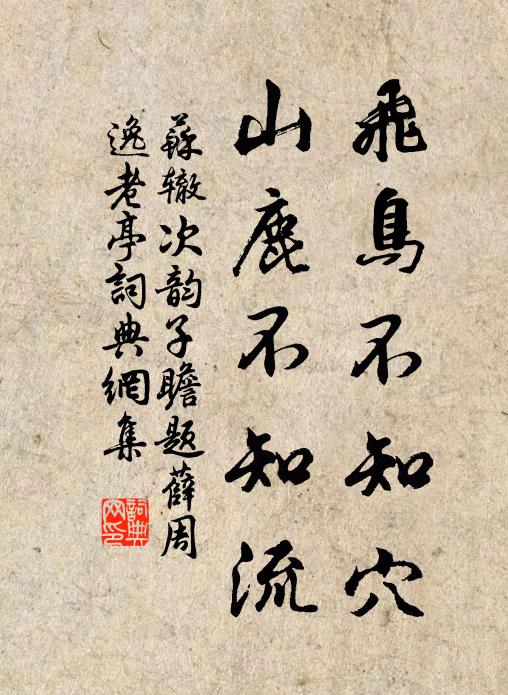 飛鳥不知穴
山鹿不知流
蘇辙次韵子瞻题薛周
逸老亭詞典網集
詞典网印